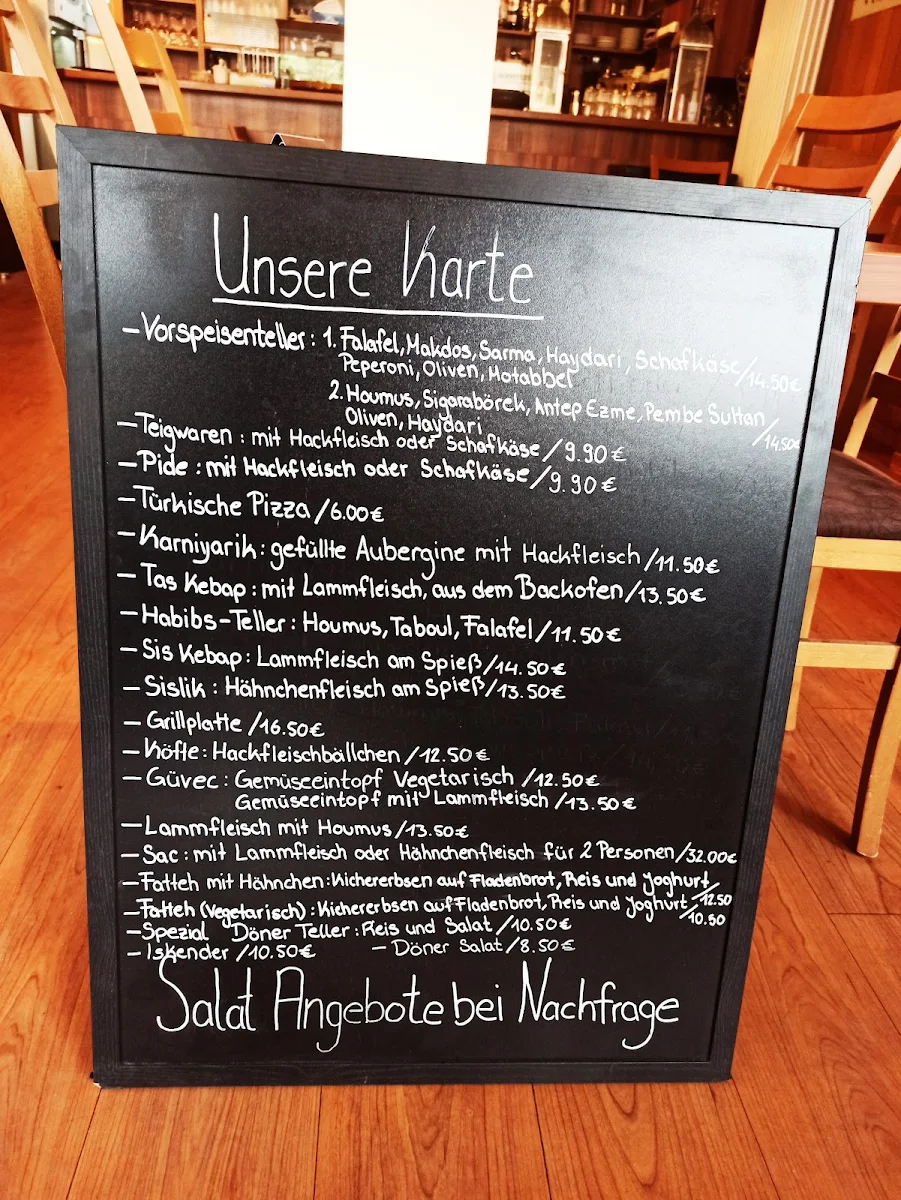 Unsere Karte
- Vorspeisenteller: 1. Falafel, Makdos, Sarma, Haydari, Schafkäse/14.50€
Peperoni, Oliven, Motabbel
2. Houmus, Sigarabörek, Antep Ezme, Pembe Sultan
Oliven, Haydari /14.50€
- Teigwaren: mit Hackfleisch oder Schafkäse/9.90€
- Pide: mit Hackfleisch oder Schafkäse/9.90€
- Türkische Pizza/6.00€
- Karniyarik: gefüllte Aubergine mit Hackfleisch/11.50€
- Tas Kebap: mit Lammfleisch, aus dem Backofen/13.50€
- Habibs-Teller: Houmus, Taboul, Falafel/11.50€
- Sis Kebap: Lammfleisch am Spieß/14.50€
- Sislik: Hähnchenfleisch am Spieß/13.50€
- Grillplatte/16.50€
- Köfte: Hackfleischbällchen/12.50€
- Güvec: Gemüseeintopf Vegetarisch/12.50€
Gemüseeintopf mit Lammfleisch/13.50€
- Lammfleisch mit Houmus/13.50€
- Sac: mit Lammfleisch oder Hähnchenfleisch für 2 Personen/32.00€
- Fatteh mit Hähnchen: Kichererbsen auf Fladenbrot, Reis und Joghurt/12.50
- Fatteh (Vegetarisch): Kichererbsen auf Fladenbrot, Reis und Joghurt/10.50
- Spezial Döner Teller: Reis und Salat/10.50€
- Iskender/10.50€ - Döner Salat/8.50€
Salat Angebote bei Nachfrage